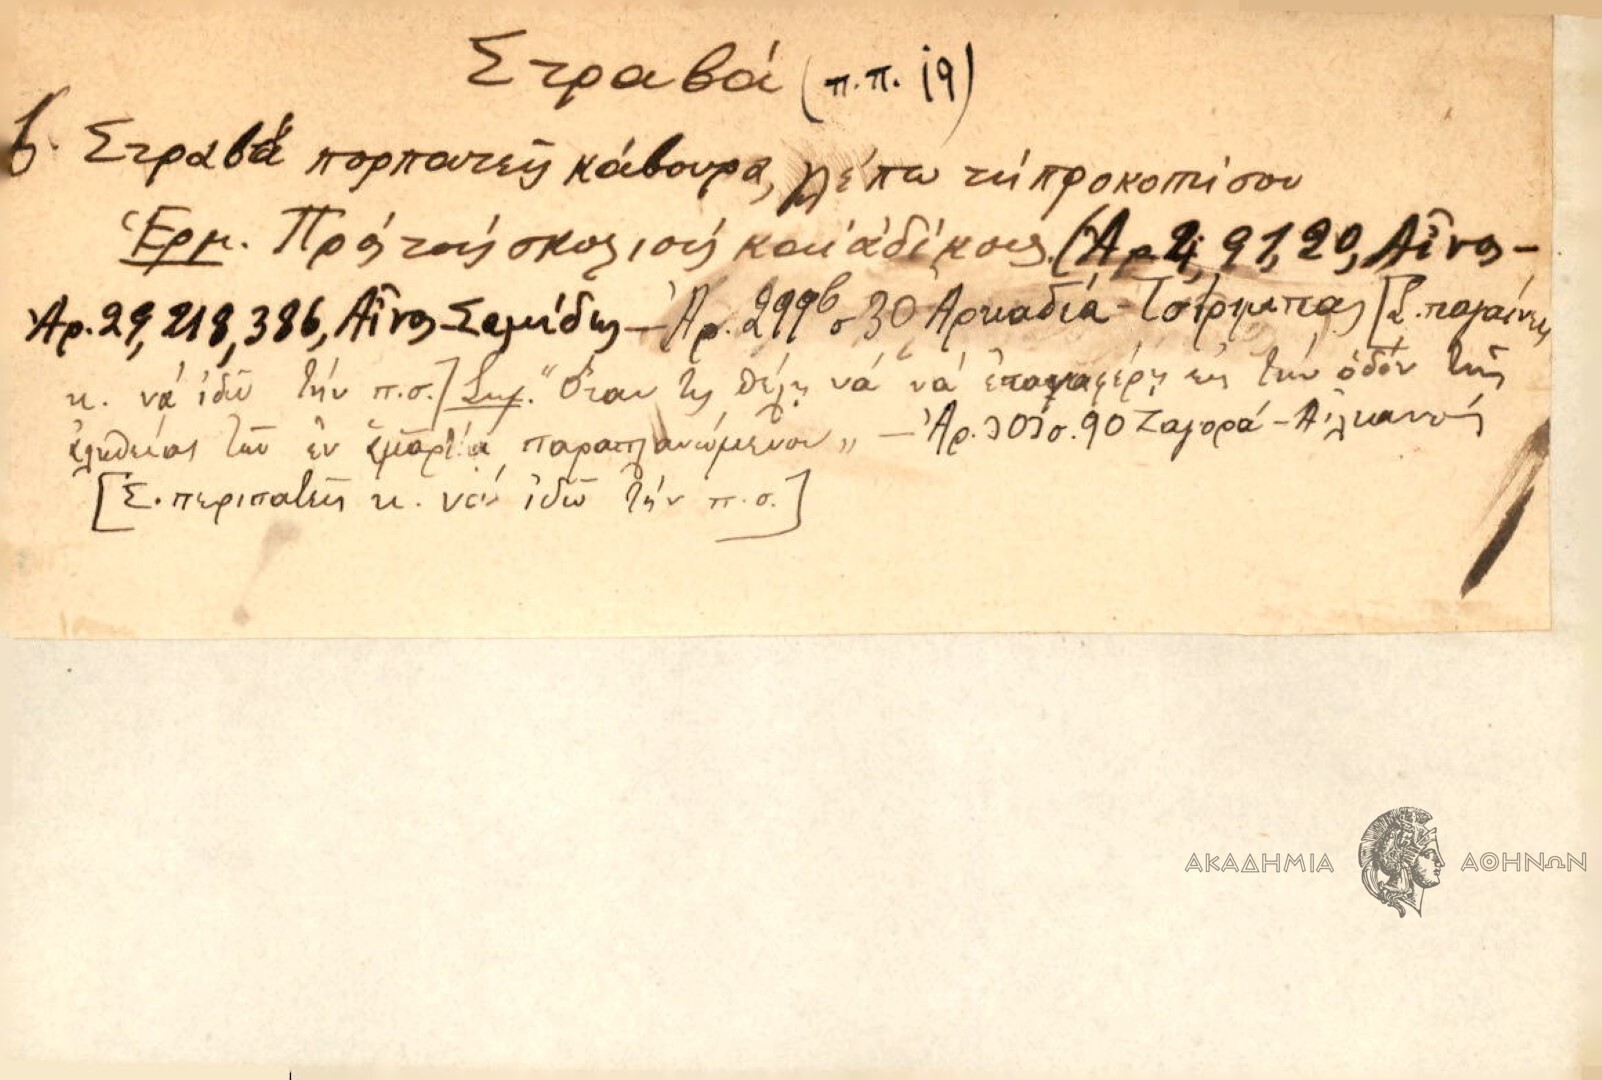 Στραβά (π.π. 19)
β. Στραβά πορπατεῖς κάβουρα, βλέπω τὴ προκοπί σου
Ἑρμ. Πρὸς τοὺς σκολιοὺς καὶ ἀδίκους (Ἀρ. 2, 91, 20, Αἶνος –
Ἀρ. 29, 218, 386, Αἶνος – Σαμίδης – Ἀρ. 299β σ 30 Ἀρκαδιά – Τσίρμπας [Σ. παγαίνεις
κ. νὰ ἰδῶ τὴν π.σ.] Σημ. "Ὅταν τις θέλῃ νὰ ἐπαναφέρῃ εἰς τὴν ὁδὸν τῆς
ἀληθείας τὸν ἐν ἁμαρτίᾳ παραπλανώμενον„ – Ἀρ. 303 σ. 90 Ζαγορά –
[Σ. περιπατεῖς κ. νὰ ἰδῶ τὴν π.σ.]
ΑΚΑΔΗΜΙΑ ΑΘΗΝΩΝ